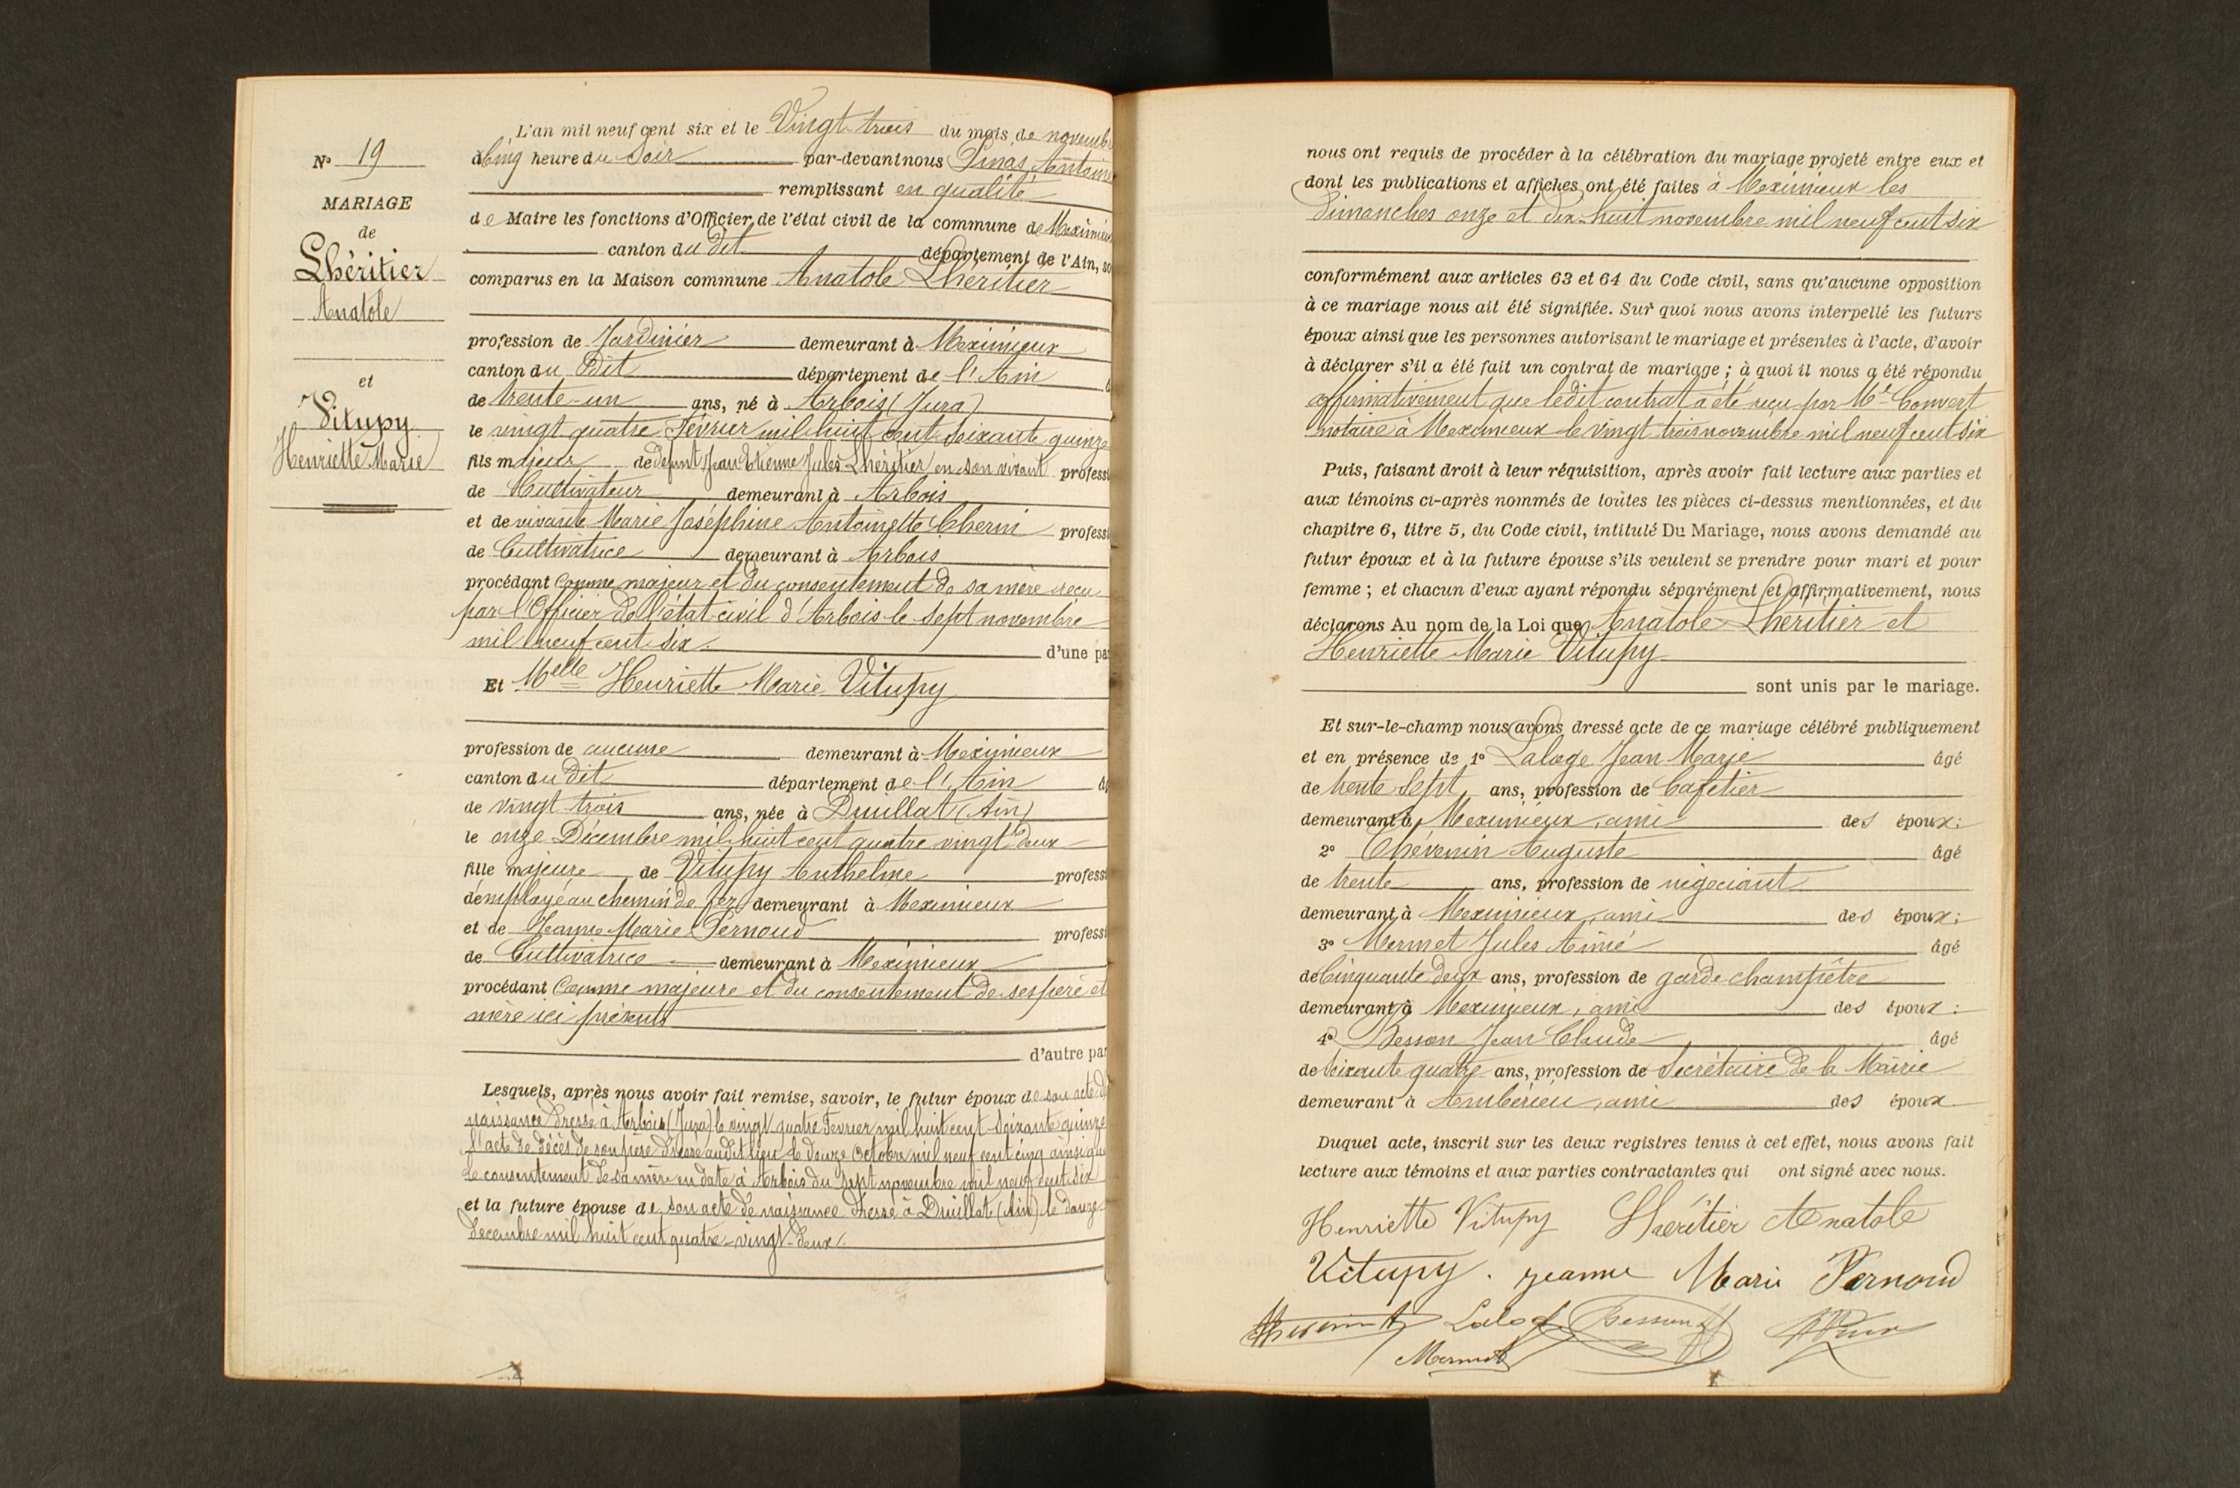 N° 19
MARIAGE
de
Lhéritier
Anatole
et
Vitupy
Henriette Marie
L'an mil neuf cent six et le Vingt-trois du mois de novemb
à cinq heure du Soir par-devant nous Pinas, Antoine
remplissant en qualité
de Maire les fonctions d'Officier de l'état civil de la commune de Meximieu
canton du dit département de l'Ain, so
comparus en la Maison commune Anatole Lhéritier
profession de Jardinier demeurant à Meximieux
canton du Dit département de l'Ain
de trente-un ans, né à Arbois (Jura)
le vingt quatre Février mil huit cent soixante quinze
fils majeur de défunt Jean Etienne Jules Lhéritier en son vivant professi
de Cultivateur demeurant à Arbois
et de vivante Marie Joséphine Antoinette professi
de Cultivatrice demeurant à Arbois
procédant comme majeur et du consentement de sa mère reçu
par l'Officier de l'état-civil d'Arbois le sept novembre
mil neuf cent six. d'une par
Et Melle Henriette Marie Vitupy
profession de aucune demeurant à Meximieux
canton du dit département de l'Ain âg
de vingt trois ans, née à Druillat (Ain)
le onze Décembre mil huit cent quatre vingt deux
fille majeure de Vitupy Anthelme professi
d'employé au chemin de fer demeurant à Meximieux
et de Jeanne Marie Pernoud professi
de Cultivatrice demeurant à Meximieux
procédant comme majeure et du consentement de ses père et
mère ici présents
d'autre par
Lesquels, après nous avoir fait remise, savoir, le futur époux de son acte de
naissance dressé à Arbois (Jura) le vingt quatre Fevrier mil huit cent soixante quinze
l'acte de décès de son père dressé au dit lieu le douze Octobre mil neuf cent cinq ainsi que
le consentement de sa mère en date à Arbois du sept novembre mil neuf cent six
et la future épouse de son acte de naissance dressé à Druillat (Ain) le douze
décembre mil huit cent quatre-vingt-deux.
nous ont requis de procéder à la célébration du mariage projeté entre eux et
dont les publications et affiches ont été faites à Meximieux les
Dimanches onze et dix-huit novembre mil neuf cent six
conformément aux articles 63 et 64 du Code civil, sans qu'aucune opposition
à ce mariage nous ait été signifiée. Sur quoi nous avons interpellé les futurs
époux ainsi que les personnes autorisant le mariage et présentes à l'acte, d'avoir
à déclarer s'il a été fait un contrat de mariage ; à quoi il nous a été répondu
affirmativement que ledit contrat a été reçu par Me Convert
notaire à Meximieux le vingt trois novembre mil neuf cent six
Puis, faisant droit à leur réquisition, après avoir fait lecture aux parties et
aux témoins ci-après nommés de toutes les pièces ci-dessus mentionnées, et du
chapitre 6, titre 5, du Code civil, intitulé Du Mariage, nous avons demandé au
futur époux et à la future épouse s'ils veulent se prendre pour mari et pour
femme ; et chacun d'eux ayant répondu séparément et affirmativement, nous
déclarons Au nom de la Loi que Anatole Lhéritier et
Henriette Marie Vitupy
sont unis par le mariage.
Et sur-le-champ nous avons dressé acte de ce mariage célébré publiquement
et en présence de 1° Laloge Jean Marie âgé
de trente sept ans, profession de Cafetier
demeurant à Meximieux, ami des époux ;
2° Thévenin Auguste âgé
de trente ans, profession de négociant
demeurant à Meximieux, ami des époux ;
3° Mermet Jules Aimé âgé
de Cinquante deux ans, profession de garde champêtre
demeurant à Meximieux, ami des époux :
4° Besson Jean Claude âgé
de Soixante quatre ans, profession de Secrétaire de la Mairie
demeurant à Ambérieu, ami des époux
Duquel acte, inscrit sur les deux registres tenus à cet effet, nous avons fait
lecture aux témoins et aux parties contractantes qui ont signé avec nous.
Henriette Vitupy Lhéritier Anatole
Vitupy. jeanne Marie Pernoud
Laloge Besson
Mermet